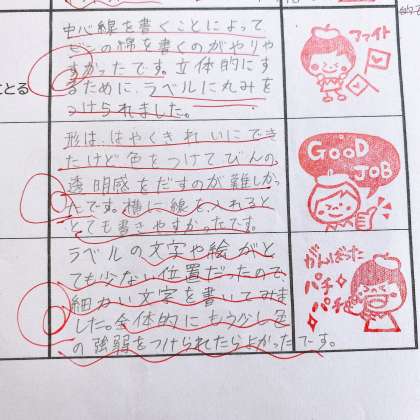 中心線を書くことによって
ビンの線を書くのがやりや
すかったです。立体的にす
るために、ラベルに丸みを
つけられました。
とる
ファイト
形は、はやくきれいにでき
たけど色をつけてびんの
透明感をだすのが難しか
たです。横に線を入れると
とても書きやすかったです。
GOOD
JOB
ラベルの文字や絵がと
ても少ない位置だったので
細かい文字を書いてみま
した。全体的にもう少し色
の強弱をつけられたらよかったです。
がんばった
パチ
パチ